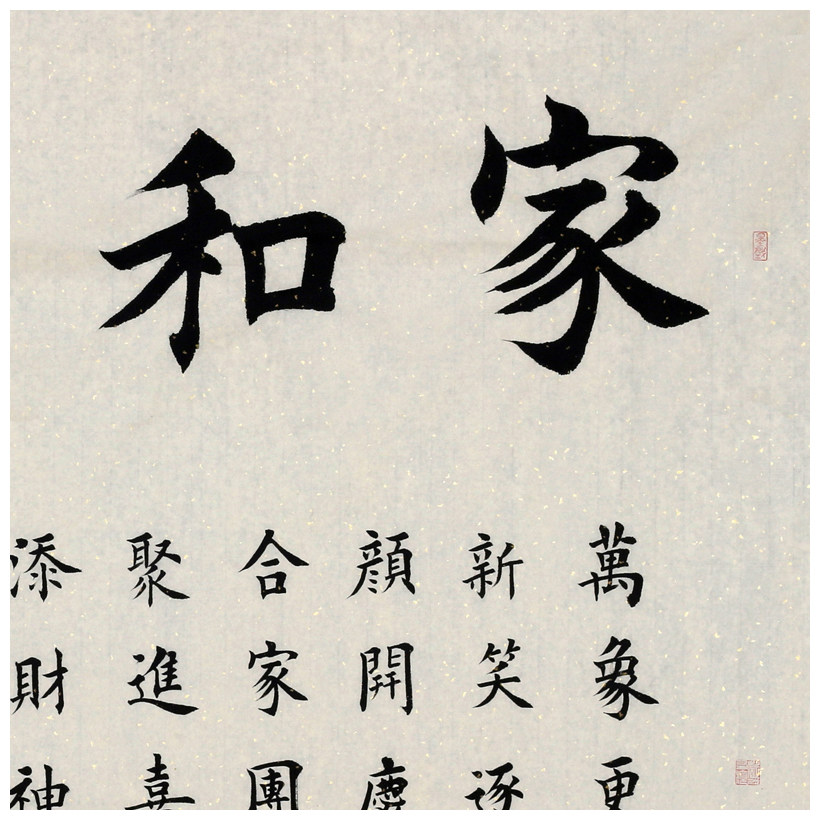 家和
萬象更
新笑逐
顔開慶
合家團
聚進喜
添財神